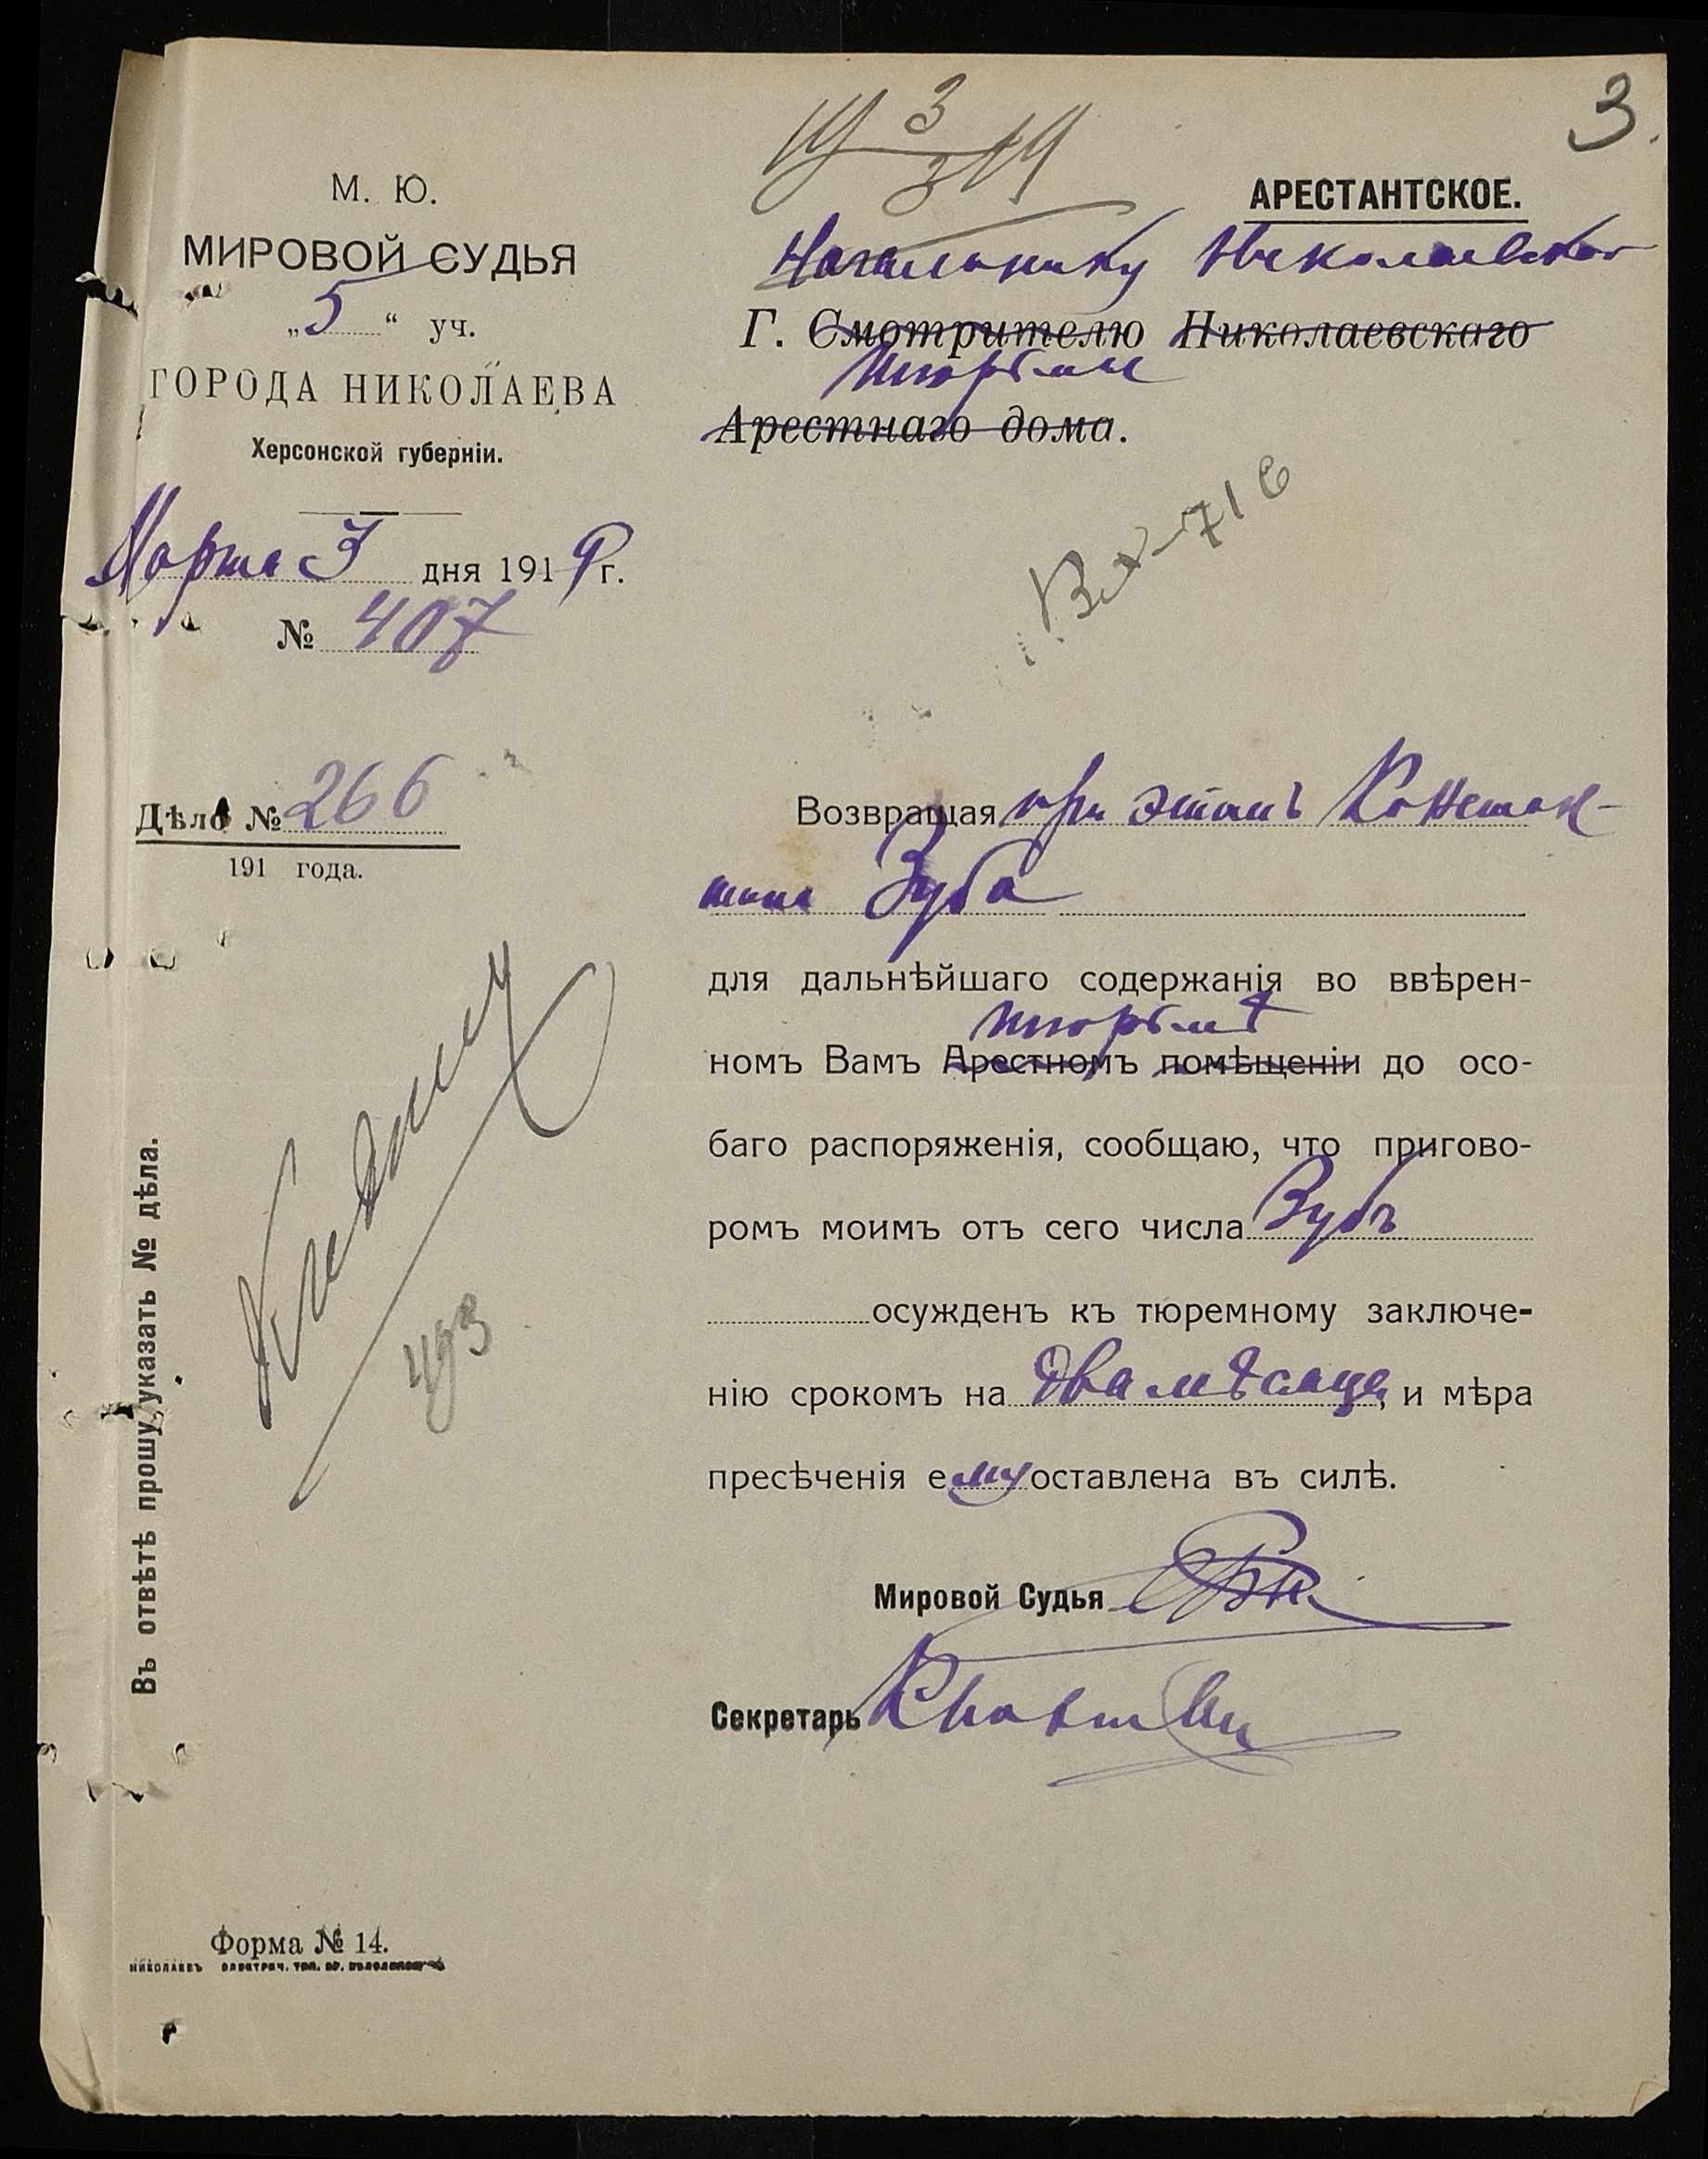 3.
3
М. Ю.
МИРОВОЙ СУДЬЯ
„5“ уч.
ГОРОДА НИКОЛАЕВА
Херсонской губерніи.
Марта 3 дня 1919 г.
№ 407
Дѣло № 266
191 года.
АРЕСТАНТСКОЕ.
Начальнику Николаевской
Г. Смотрителю Николаевскаго
тюрьмы
Арестнаго дома.
Вх-716
Возвращая при этомъ Констан-
тина Зуба
для дальнѣйшаго содержанія во ввѣрен-
тюрьмѣ
номъ Вамъ Арестномъ помѣщеніи до осо-
баго распоряженія, сообщаю, что пригово-
ромъ моимъ отъ сего числа Зубъ
осужденъ къ тюремному заключе-
нію срокомъ на два мѣсяца, и мѣра
пресѣченія ему оставлена въ силѣ.
Мировой Судья
Секретарь
Въ отвѣтѣ прошу указать № дѣла.
Форма № 14.